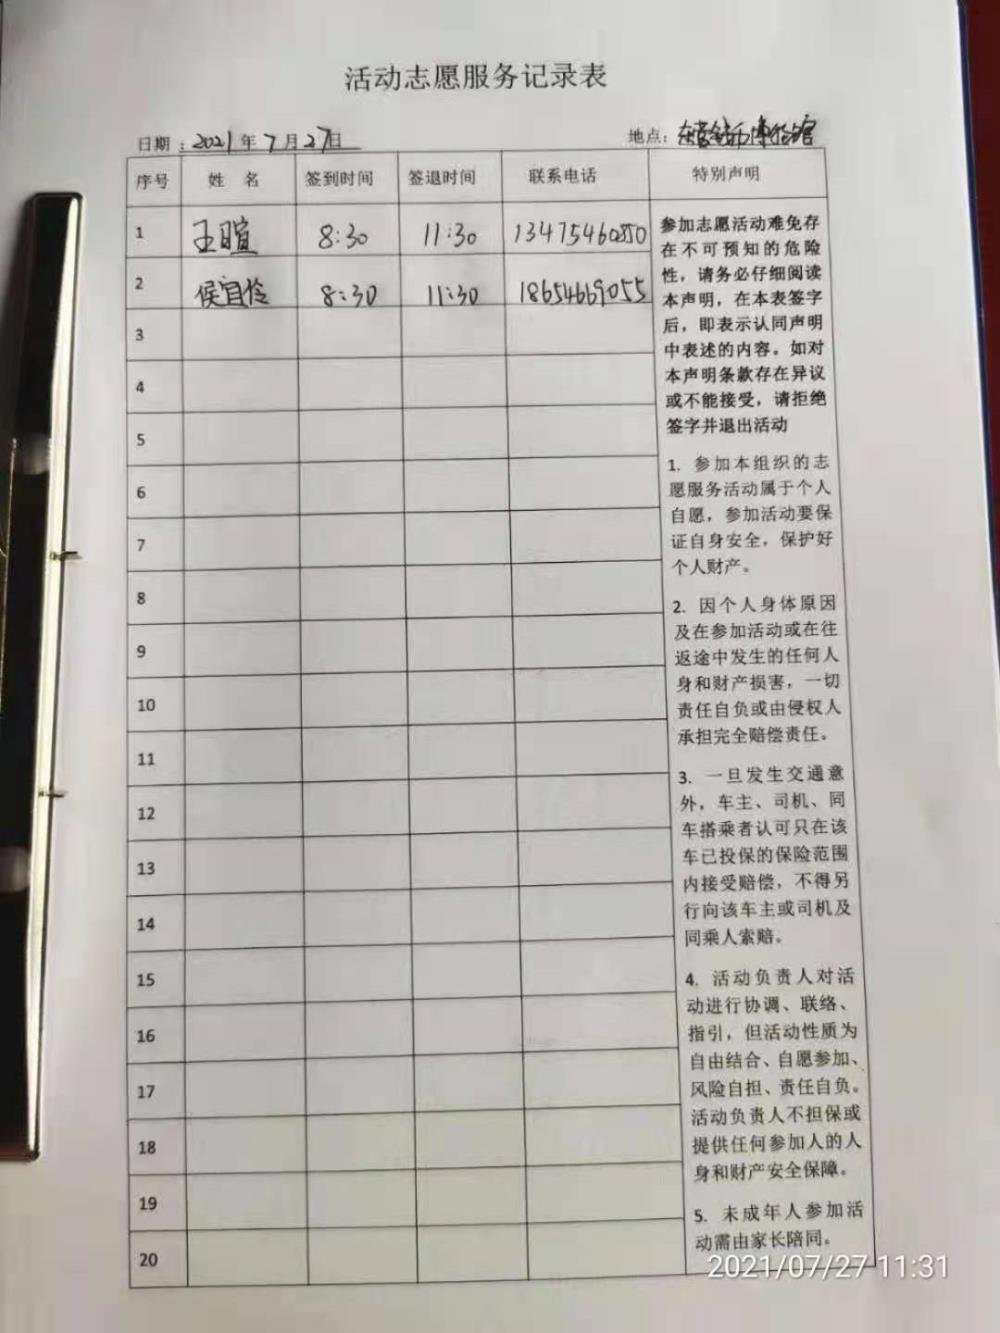 活动志愿服务记录表
日期：2021年7月27日 地点：东营钱币博物馆
序号 姓 名 签到时间 签退时间 联系电话 特别声明
1 王暄 8:30 11:30
2 侯宜伶 8:30 11:30 18654669055
3
4
5
6
7
8
9
10
11
12
13
14
15
16
17
18
19
20
参加志愿活动难免存
在不可预知的危险
性，请务必仔细阅读
本声明，在本表签字
后，即表示认同声明
中表述的内容。如对
本声明条款存在异议
或不能接受，请拒绝
签字并退出活动
1. 参加本组织的志
愿服务活动属于个人
自愿，参加活动要保
证自身安全，保护好
个人财产。
2. 因个人身体原因
及在参加活动或在往
返途中发生的任何人
身和财产损害，一切
责任自负或由侵权人
承担完全赔偿责任。
3. 一旦发生交通意
外，车主、司机、同
车搭乘者认可只在该
车已投保的保险范围
内接受赔偿，不得另
行向该车主或司机及
同乘人索赔。
4. 活动负责人对活
动进行协调、联络、
指引，但活动性质为
自由结合、自愿参加、
风险自担、责任自负。
活动负责人不担保或
提供任何参加人的人
身和财产安全保障。
5. 未成年人参加活
动需由家长陪同。
2021/07/27 11:31